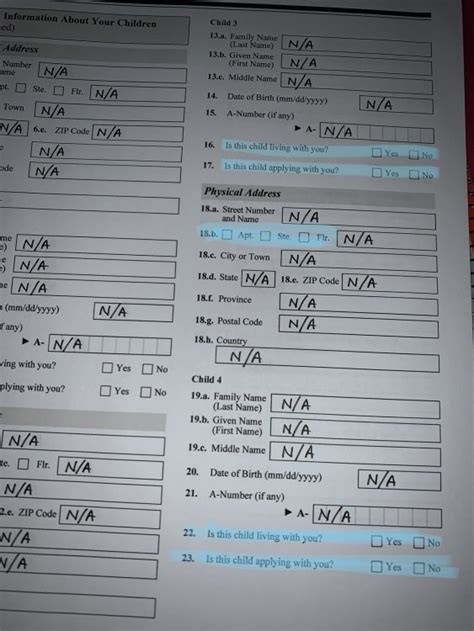 Information About Your Children
ed)
Address
Number
ame N/A
pt. Ste. Flr. N/A
Town N/A
N/A 6.e. ZIP Code N/A
e N/A
ode N/A
me
e) N/A
e
e) N/A
me N/A
(mm/dd/yyyy) N/A
f any)
A- N/A
ving with you? Yes No
plying with you? Yes No
N/A
te. Flr. N/A
N/A
2.e. ZIP Code N/A
N/A
N/A
Child 3
13.a. Family Name
(Last Name) N/A
13.b. Given Name
(First Name) N/A
13.c. Middle Name N/A
14. Date of Birth (mm/dd/yyyy) N/A
15. A-Number (if any)
► A- N/A
16. Is this child living with you? Yes No
17. Is this child applying with you? Yes No
Physical Address
18.a. Street Number
and Name N/A
18.b. Apt. Ste. Flr. N/A
18.c. City or Town N/A
18.d. State N/A 18.e. ZIP Code N/A
18.f. Province N/A
18.g. Postal Code N/A
18.h. Country
N/A
Child 4
19.a. Family Name
(Last Name) N/A
19.b. Given Name
(First Name) N/A
19.c. Middle Name N/A
20. Date of Birth (mm/dd/yyyy) N/A
21. A-Number (if any)
► A- N/A
22. Is this child living with you? Yes No
23. Is this child applying with you? Yes No